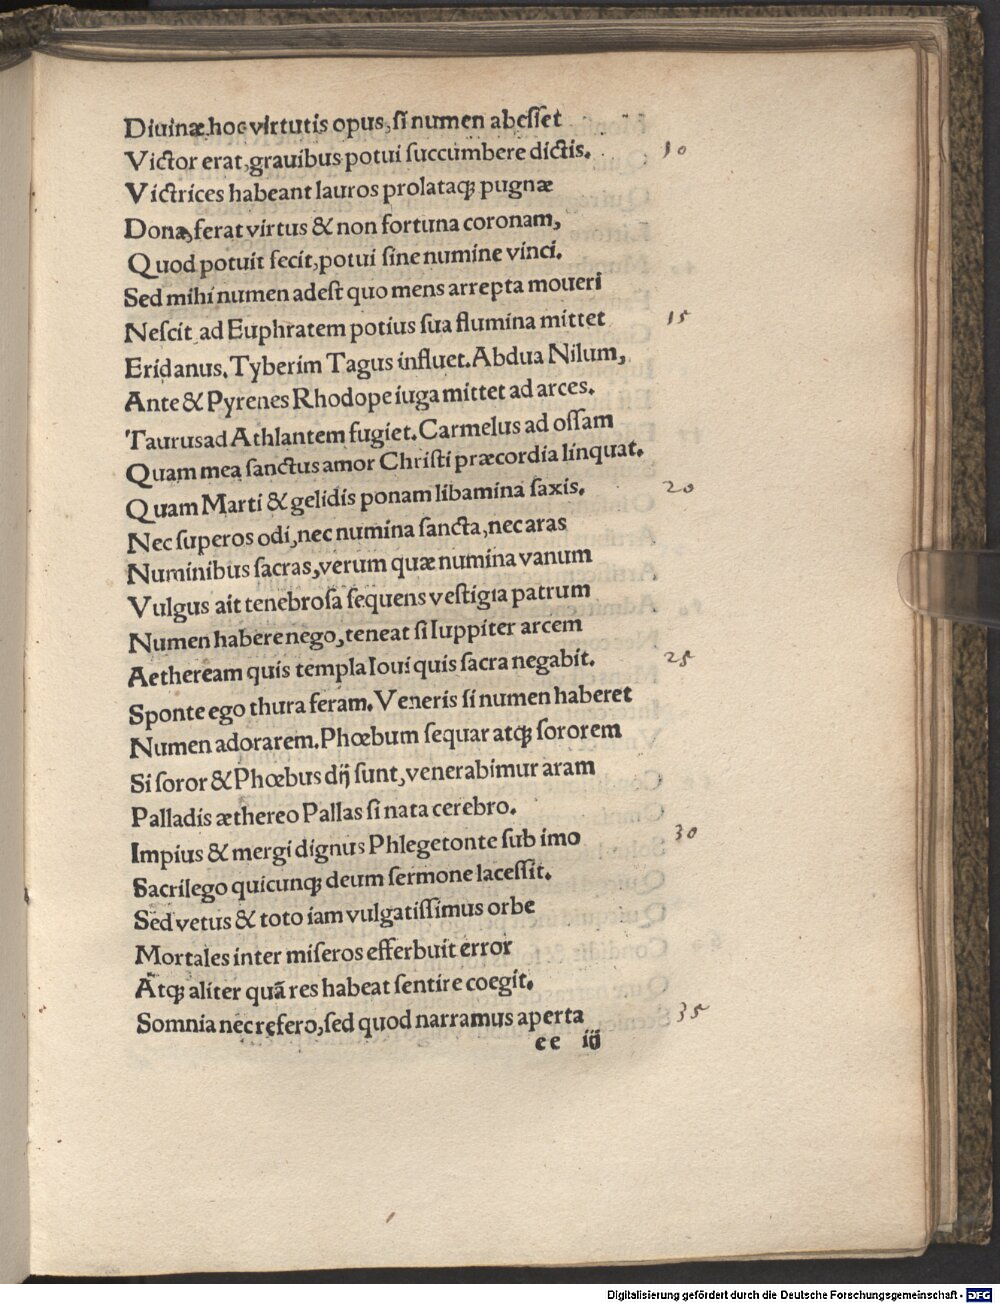 Diuinæ hoc virtutis opus, si numen abesset
Victor erat, grauibus potui succumbere dictis. 10
Victrices habeant lauros prolataq; pugnæ
Dona, ferat virtus & non fortuna coronam,
Quod potuit fecit, potui sine numine vinci.
Sed mihi numen adest quo mens arrepta moueri
Nescit, ad Euphratem potius sua flumina mittet 15
Eridanus. Tyberim Tagus influet. Abdua Nilum,
Ante & Pyrenes Rhodope iuga mittet ad arces.
Taurus ad Athlantem fugiet. Carmelus ad ossam
Quam mea sanctus amor Christi præcordia linquat.
Quam Marti & gelidis ponam libamina saxis. 20
Nec superos odi, nec numina sancta, nec aras
Numinibus sacras, verum quæ numina vanum
Vulgus ait tenebrosa sequens vestigia patrum
Numen habere nego, teneat si Iuppiter arcem
Aetheream quis templa Ioui quis sacra negabit. 25
Sponte ego thura feram. Veneris si numen haberet
Numen adorarem. Phœbum sequar atq; sororem
Si soror & Phœbus dij sunt, venerabimur aram
Palladis æthereo Pallas si nata cerebro.
Impius & mergi dignus Phlegetonte sub imo 30
Sacrilego quicunq; deum sermone lacessit.
Sed vetus & toto iam vulgatissimus orbe
Mortales inter miseros efferbuit error
Atq; aliter quã res habeat sentire coegit.
Somnia nec refero, sed quod narramus aperta 35
ee iij
Digitalisierung gefördert durch die Deutsche Forschungsgemeinschaft - DFG